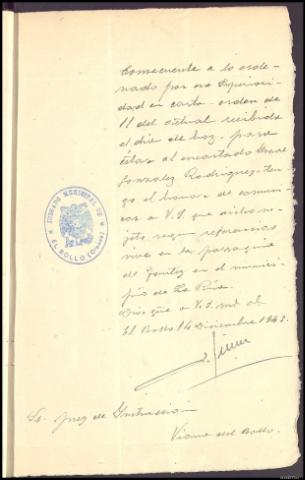 Consecuente a lo orde-
nado por esa Superiori-
dad en carta-orden de
11 del actual recibida
el dia de hoy, para
citar al encartado
Gonzalez Rodriguez, ten-
go el honor de comuni-
car a V.S. que dicho su-
jeto según referencias
vive en la parroquia
de en el munici-
pio de La Rúa.
Dios gûe a V.S. m. a.
El Bollo 14 Diciembre 1942.
JUZGADO MUNICIPAL DE
EL BOLLO (Orense)
Sr. Juez de Instrucción
Viana del Bollo.